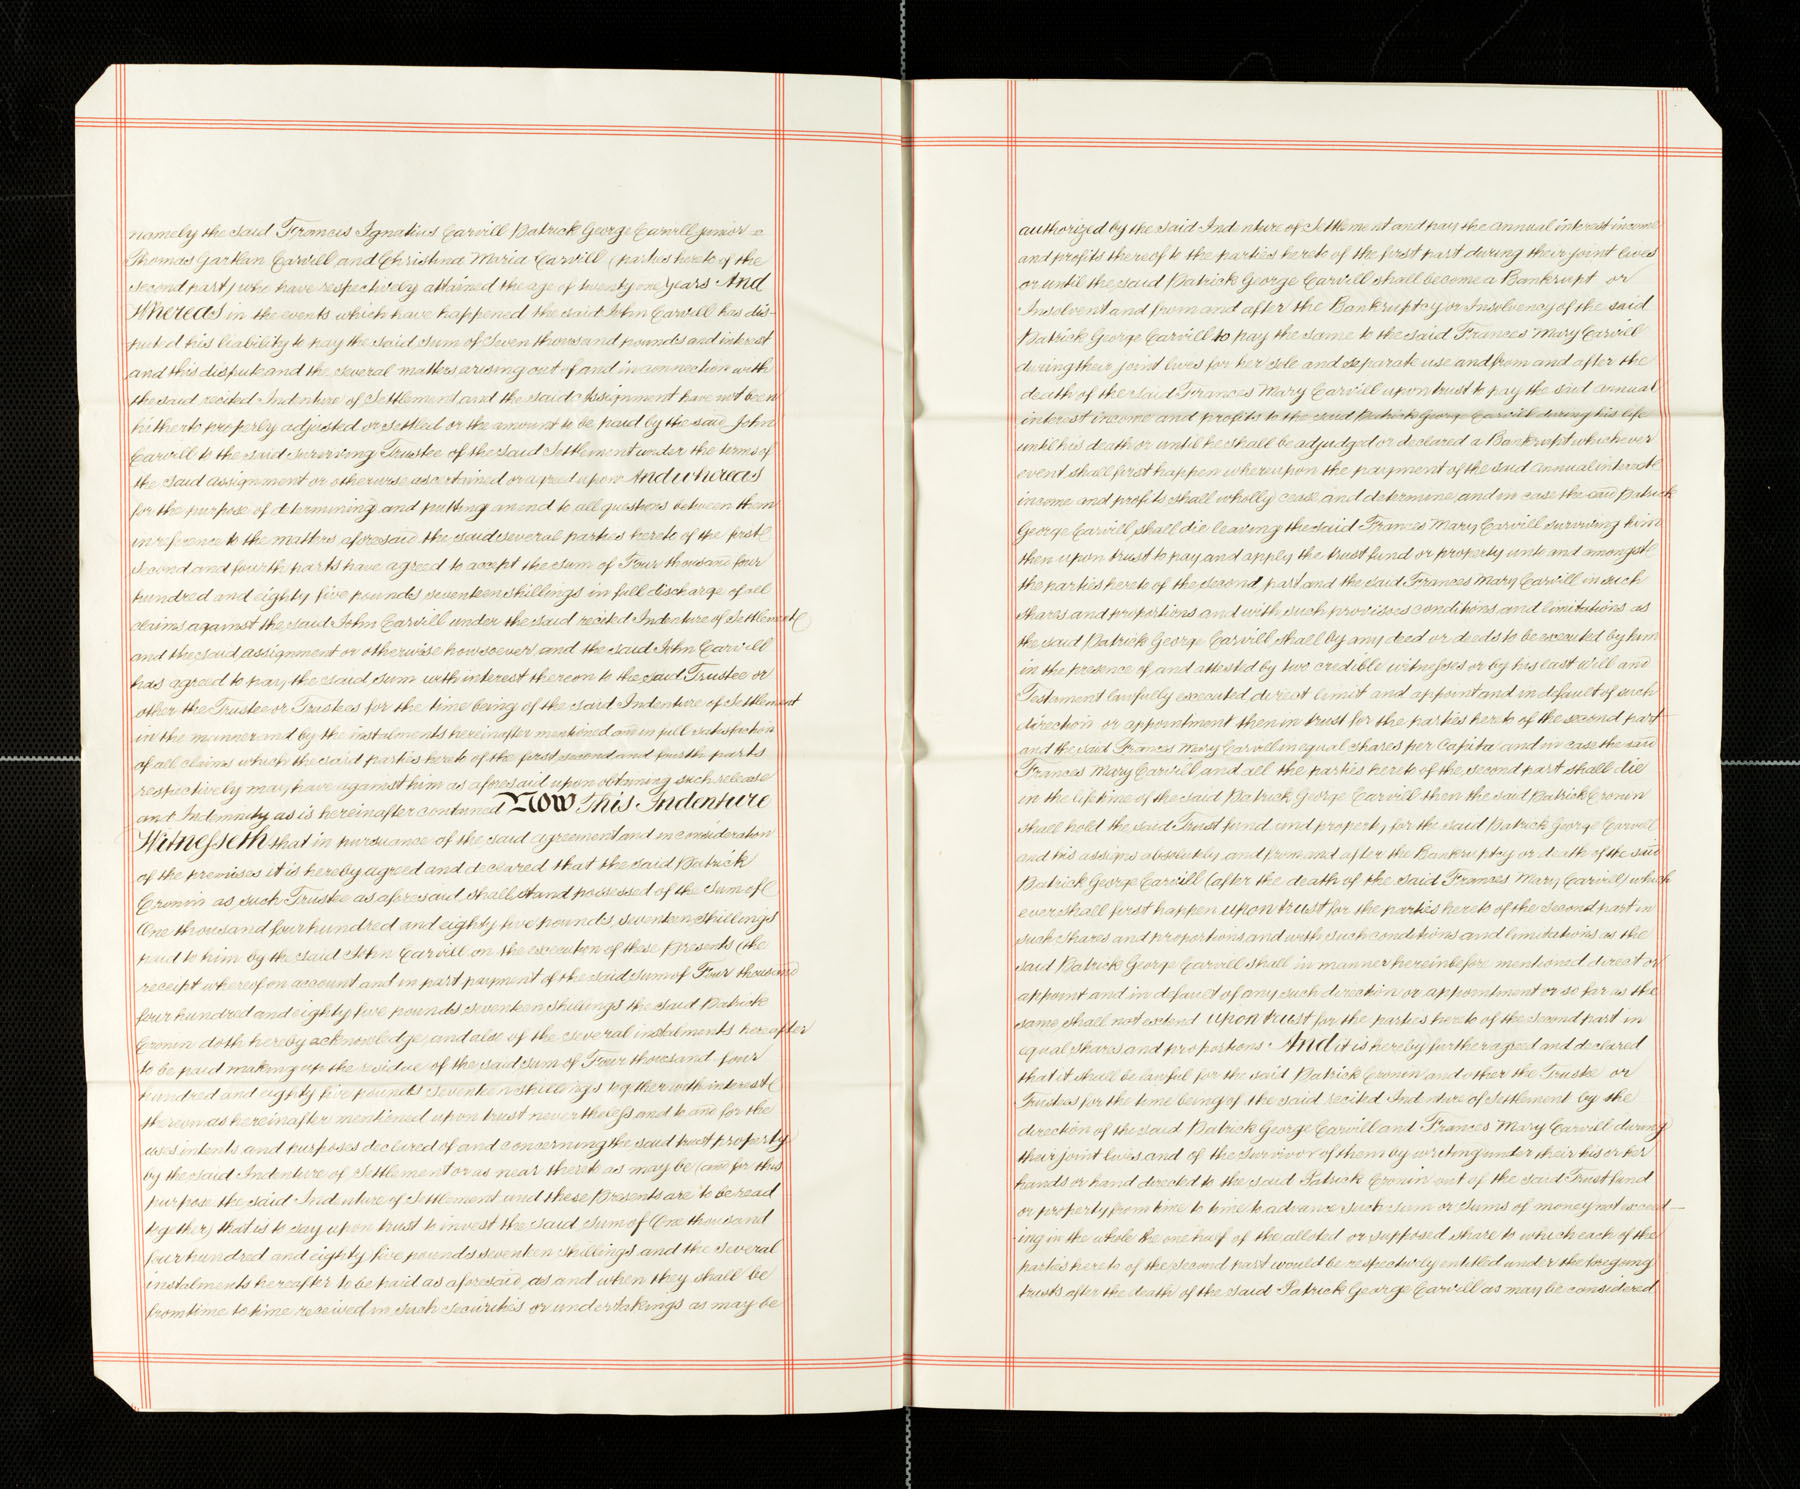 namely the said Francis Ignatius Carvill Patrick George Carvill junior
Thomas Gartlan Carvill and Christina Maria Carvill (parties hereto of the
second part) who have respectively attained the age of twenty one years And
Whereas in the events which have happened the said John Carvill has dis-
puted his liability to pay the said sum of Seven thousand pounds and interest
and this dispute and the several matters arising out of and in connection with
the said recited Indenture of Settlement and the said Assignment have not been
hitherto properly adjusted or settled or the amount to be paid by the said John
Carvill to the said surviving Trustee of the said Settlement under the terms of
the said assignment or otherwise ascertained or agreed upon And whereas
for the purpose of determining and putting an end to all questions between them
in reference to the matters aforesaid the said several parties hereto of the first
second and fourth parts have agreed to accept the sum of Four thousand four
hundred and eighty five pounds seventeen shillings in full discharge of all
claims against the said John Carvill under the said recited Indenture of Settlement
and the said assignment or otherwise howsoever and the said John Carvill
has agreed to pay the said sum with interest thereon to the said Trustee or
other the Trustee or Trustees for the time being of the said Indenture of Settlement
in the manner and by the instalments hereinafter mentioned and in full satisfaction
of all claims which the said parties hereto of the first second and fourth parts
respectively may have against him as aforesaid upon obtaining such release
and Indemnity as is hereinafter contained Now This Indenture
Witnesseth that in pursuance of the said agreement and in consideration
of the premises it is hereby agreed and declared that the said Patrick
Cronin as such Trustee as aforesaid shall stand possessed of the sum of
One thousand four hundred and eighty five pounds seventeen shillings
paid to him by the said John Carvill on the execution of these Presents (the
receipt whereof on account and in part payment of the said sum of Four thousand
four hundred and eighty five pounds seventeen shillings the said Patrick
Cronin doth hereby acknowledge) and also of the several instalments hereafter
to be paid making up the residue of the said sum of Four thousand four
hundred and eighty five pounds seventeen shillings together with interest
thereon as hereinafter mentioned upon trust nevertheless and to and for the
uses intents and purposes declared of and concerning the said trust property
by the said Indenture of Settlement or as near thereto as may be (and for this
purpose the said Indenture of Settlement and these Presents are to be read
together) that is to say upon trust to invest the said sum of One thousand
four hundred and eighty five pounds seventeen shillings and the several
instalments hereafter to be paid as aforesaid as and when they shall be
from time to time received in such securities or undertakings as may be
authorized by the said Indenture of Settlement and pay the annual interest income
and profits thereof to the parties hereto of the first part during their joint lives
or until the said Patrick George Carvill shall become a Bankrupt or
Insolvent and from and after the Bankruptcy or Insolvency of the said
Patrick George Carvill to pay the same to the said Frances Mary Carvill
during their joint lives for her sole and separate use and from and after the
death of the said Frances Mary Carvill upon trust to pay the said annual
interest income and profits to the said Patrick George Carvill during his life
until his death or until he shall be adjudged or declared a Bankrupt whichever
event shall first happen whereupon the payment of the said annual interest
income and profits shall wholly cease and determine and in case the said Patrick
George Carvill shall die leaving the said Frances Mary Carvill surviving him
then upon trust to pay and apply the trust fund or property unto and amongst
the parties hereto of the second part and the said Frances Mary Carvill in such
shares and proportions and with such provisoes conditions and limitations as
the said Patrick George Carvill shall by any deed or deeds to be executed by him
in the presence of and attested by two credible witnesses or by his last Will and
Testament lawfully executed direct limit and appoint and in default of such
direction or appointment then in trust for the parties hereto of the second part
and the said Frances Mary Carvill in equal shares per Capita and in case the said
Frances Mary Carvill and all the parties hereto of the second part shall die
in the lifetime of the said Patrick George Carvill then the said Patrick Cronin
shall hold the said Trust fund and property for the said Patrick George Carvill
and his assigns absolutely and from and after the Bankruptcy or death of the said
Patrick George Carvill (after the death of the said Frances Mary Carvill) which
ever shall first happen upon trust for the parties hereto of the second part in
such shares and proportions and with such conditions and limitations as the
said Patrick George Carvill shall in manner hereinbefore mentioned direct or
appoint and in default of any such direction or appointment or so far as the
same shall not extend upon trust for the parties hereto of the second part in
equal shares and proportions And it is hereby further agreed and declared
that it shall be lawful for the said Patrick Cronin and other the Trustee or
Trustees for the time being of the said recited Indenture of Settlement by the
direction of the said Patrick George Carvill and Frances Mary Carvill during
their joint lives and of the survivor of them by writing under their his or her
hands or hand directed to the said Patrick Cronin out of the said Trust fund
or property from time to time to advance such sum or sums of money not exceed-
ing in the whole the one half of the alloted or supposed share to which each of the
parties hereto of the second part would be respectively entitled under the foregoing
trusts after the death of the said Patrick George Carvill as may be considered